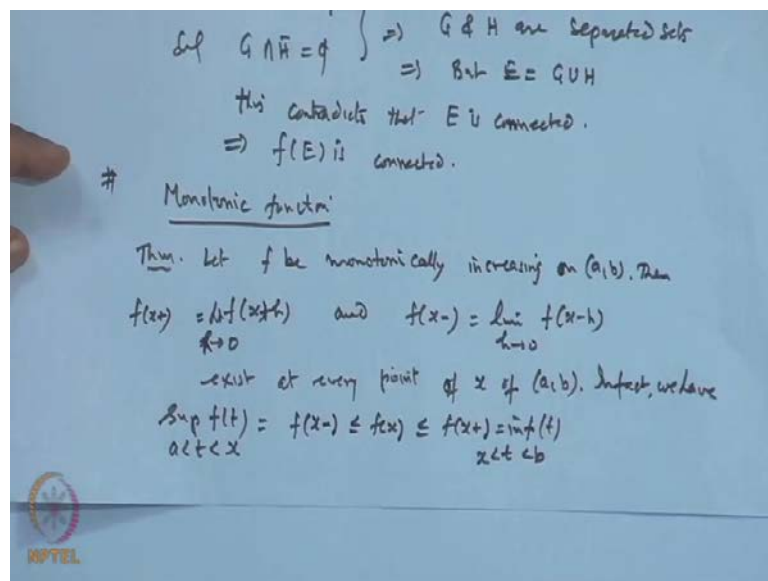 and G ∩ H̄ = φ } ⇒ G & H are separated sets
⇒ But E = G∪H
this contradicts that E is connected.
⇒ f(E) is connected.
# Monotonic function
Thm. Let f be monotonically increasing on (a,b). Then
f(x+) = lt f(x+h) and f(x-) = lim f(x-h)
h→0 h→0
exist at every point of x of (a,b). Infact, we have
Sup f(t) = f(x-) ≤ f(x) ≤ f(x+) = inf f(t)
a<t<x x<t<b
NPTEL